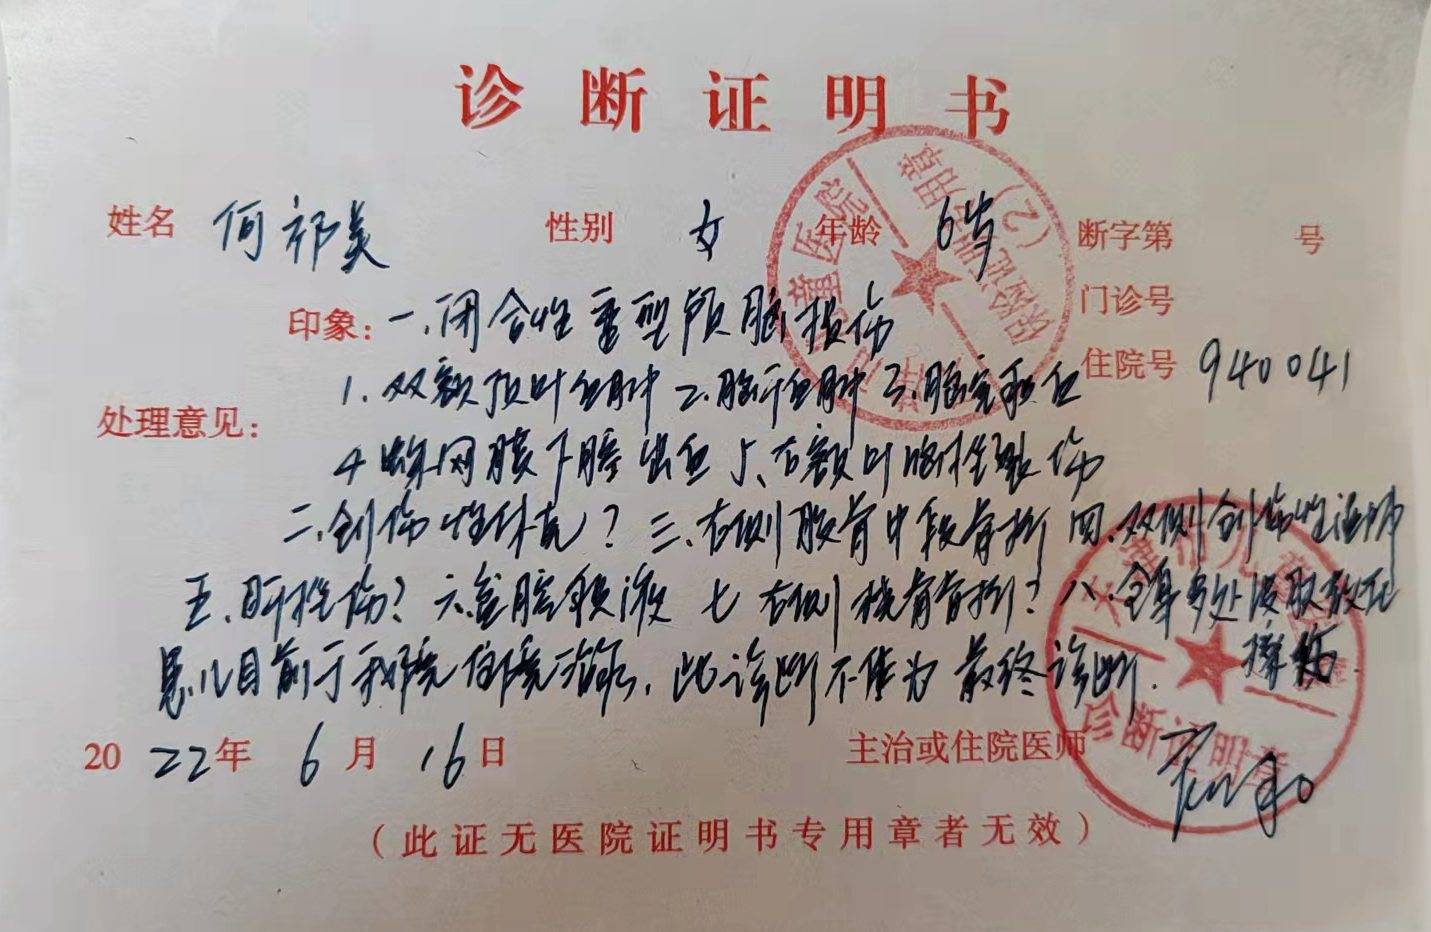 诊断证明书
姓名 何祁美 性别 女 年龄 6岁 断字第 号
门诊号
印象: 一.闭合性重型颅脑损伤
住院号 940041
1.双额顶叶血肿 2.脑干血肿 3.脑室积血
处理意见:
4 蛛网膜下腔出血 5、右额叶脑挫裂伤
二.创伤性休克? 三.右侧股骨中段骨折 四.双侧创伤性湿肺
五.肝挫伤? 六.盆腔积液 七 右侧桡骨骨折? 八.全身多处皮肤软组
擦伤
患儿目前于我院住院治疗,此诊断不作为最终诊断.
2022年 6月 16日 主治或住院医师
(此证无医院证明书专用章者无效)
儿童医院
诊断证明
专用章
(2)
天津市儿童
诊断证明章